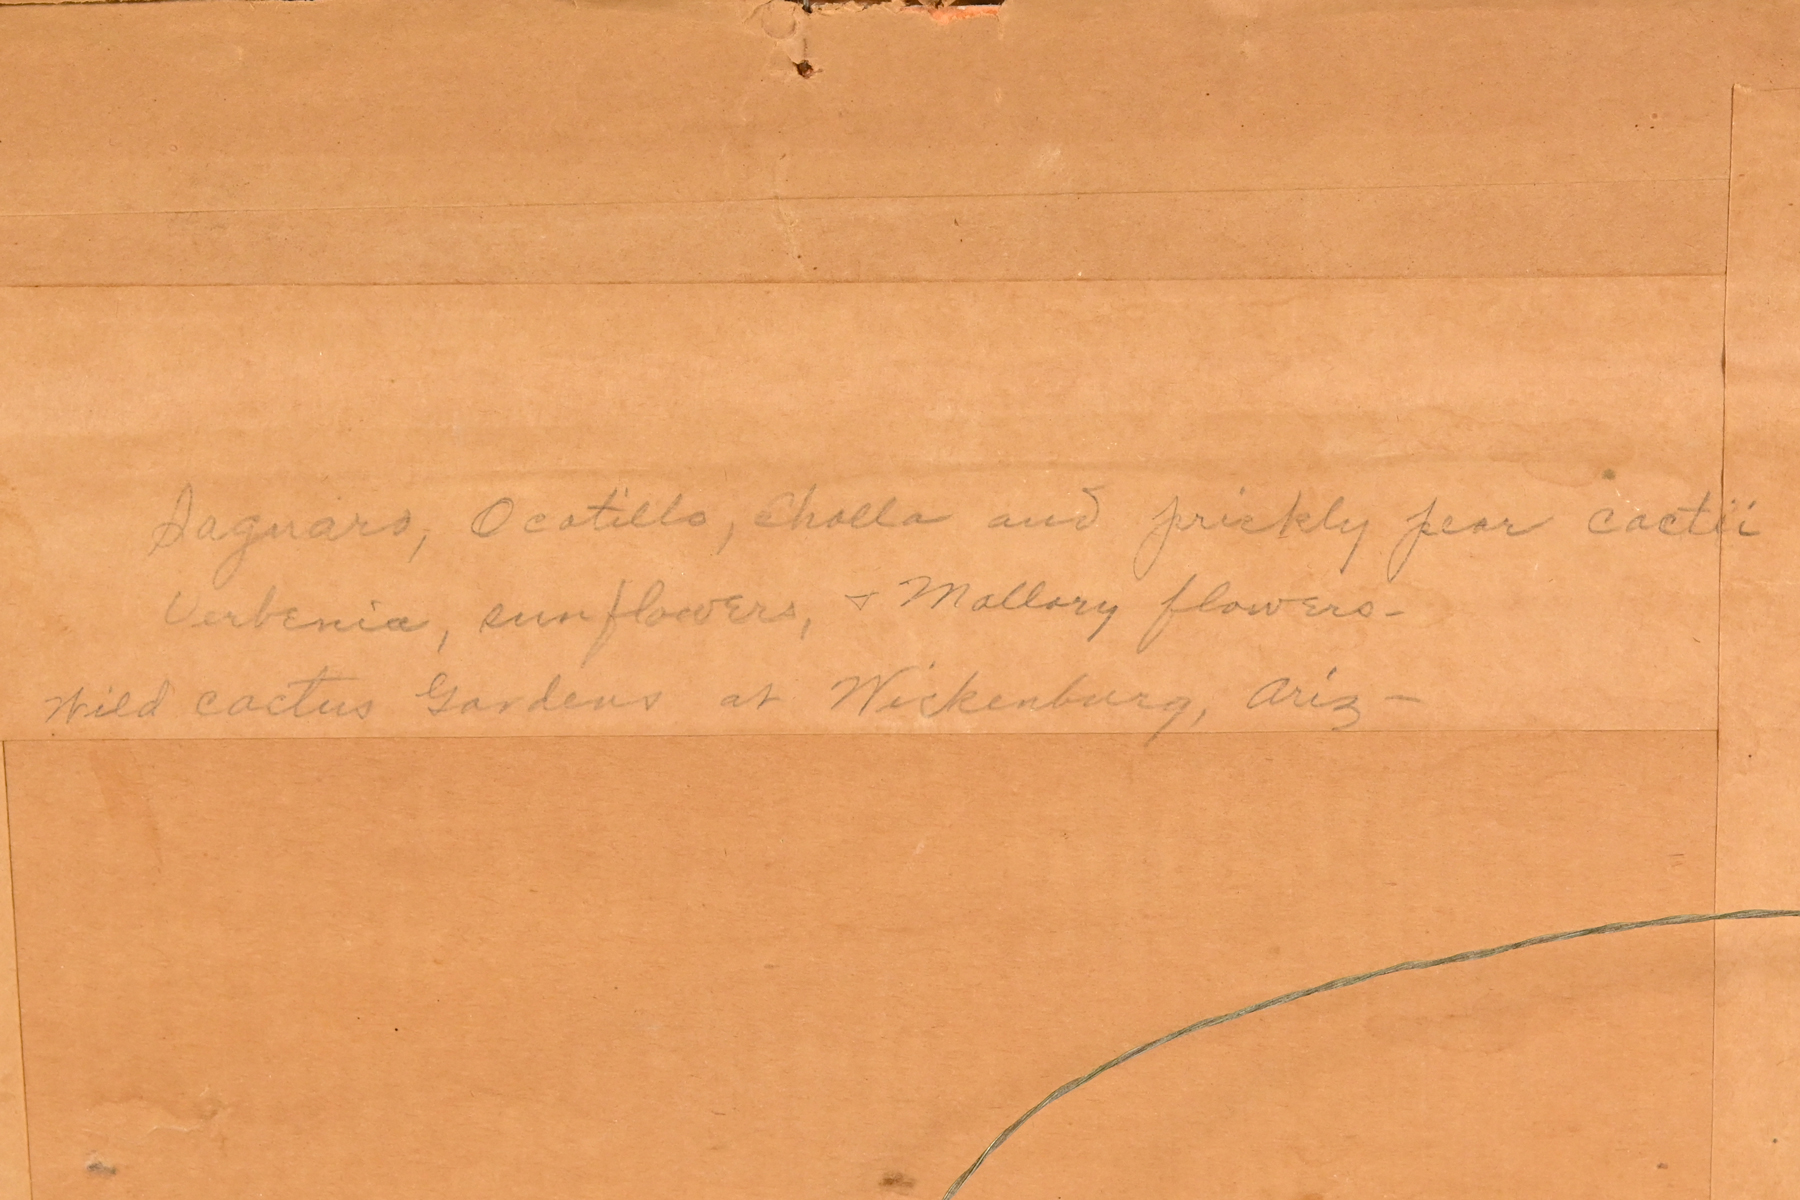 Saguaro, Ocotillo, Cholla and prickly pear cactii
Verbenia, sunflowers, & Mallory flowers-
Wild cactus Gardens at Wickenburg, Ariz-